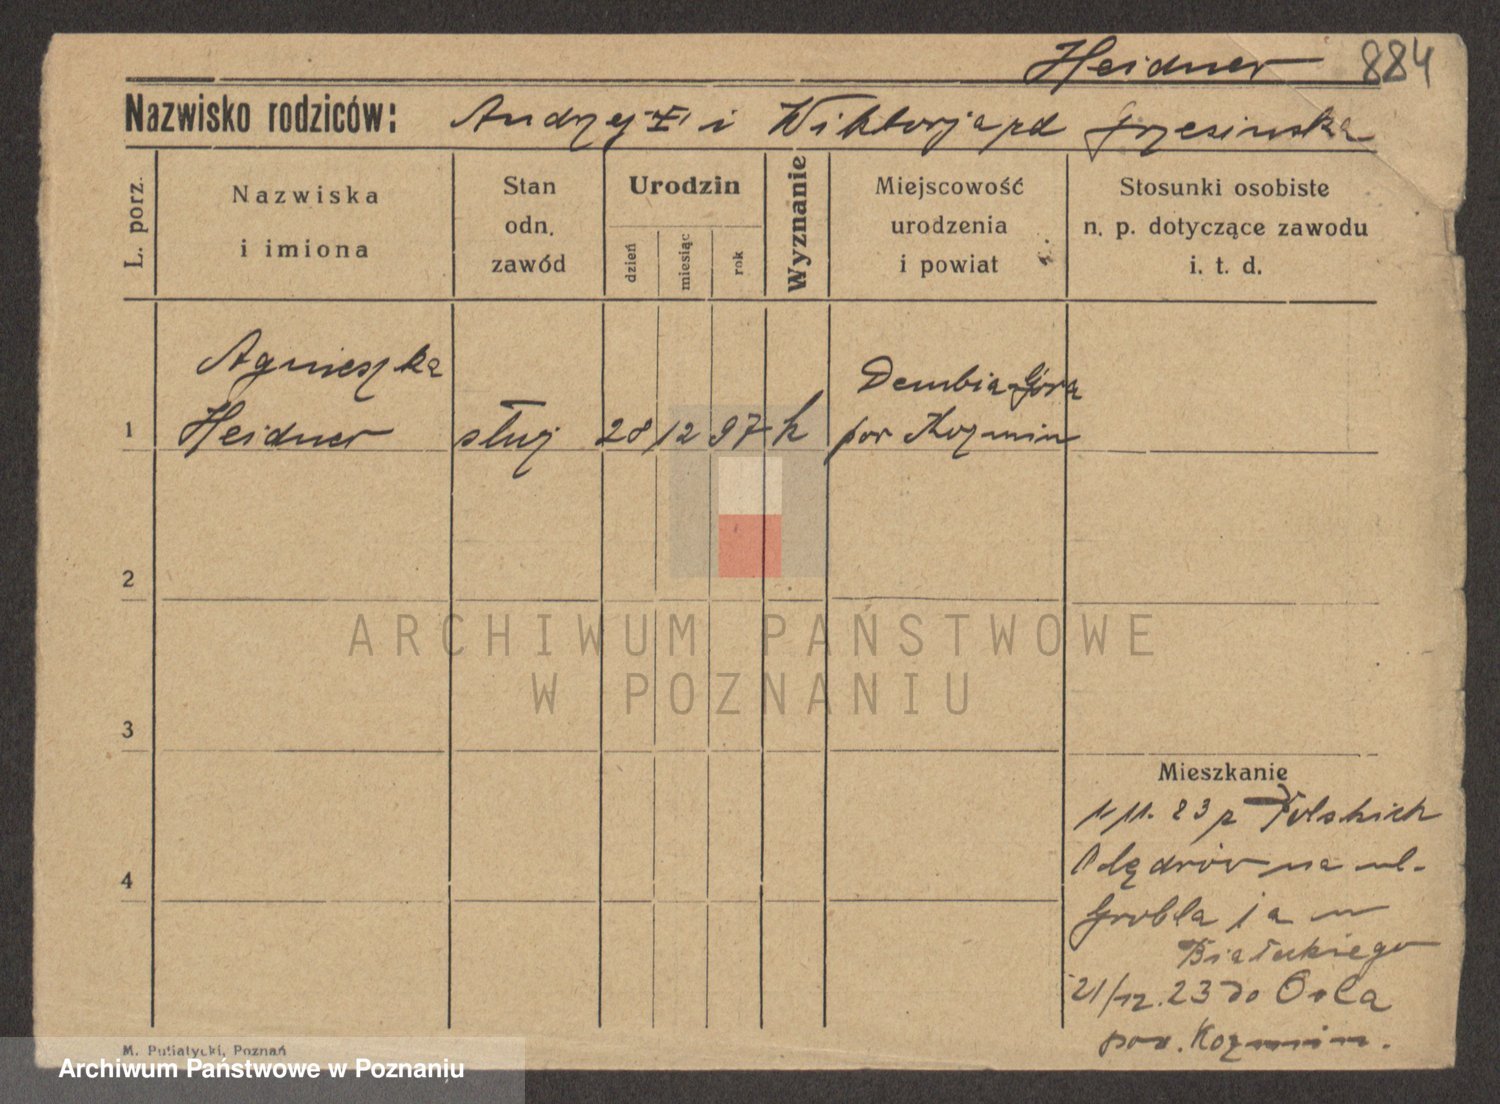 Heidner 884
Nazwisko rodziców: Andrzej i Wiktorja zd Grzesinska
L. porz.
Nazwiska
i imiona
Stan
odn.
zawód
Urodzin
dzień
miesiąc
rok
Wyznanie
Miejscowość
urodzenia
i powiat
Stosunki osobiste
n. p. dotyczące zawodu
i. t. d.
Agnieszka
Heidner
1
służ
28
12
97
k
Dembia Góra
pow Kozmin
2
3
4
Mieszkanie
11. 23 z Polskich
Olędrów na ul.
Grobla 1a
Białeckiego
21/12.23 do Orla
pow. Kozmin.
ARCHIWUM PAŃSTWOWE
W POZNANIU
M. Putiatycki, Poznań
Archiwum Państwowe w Poznaniu